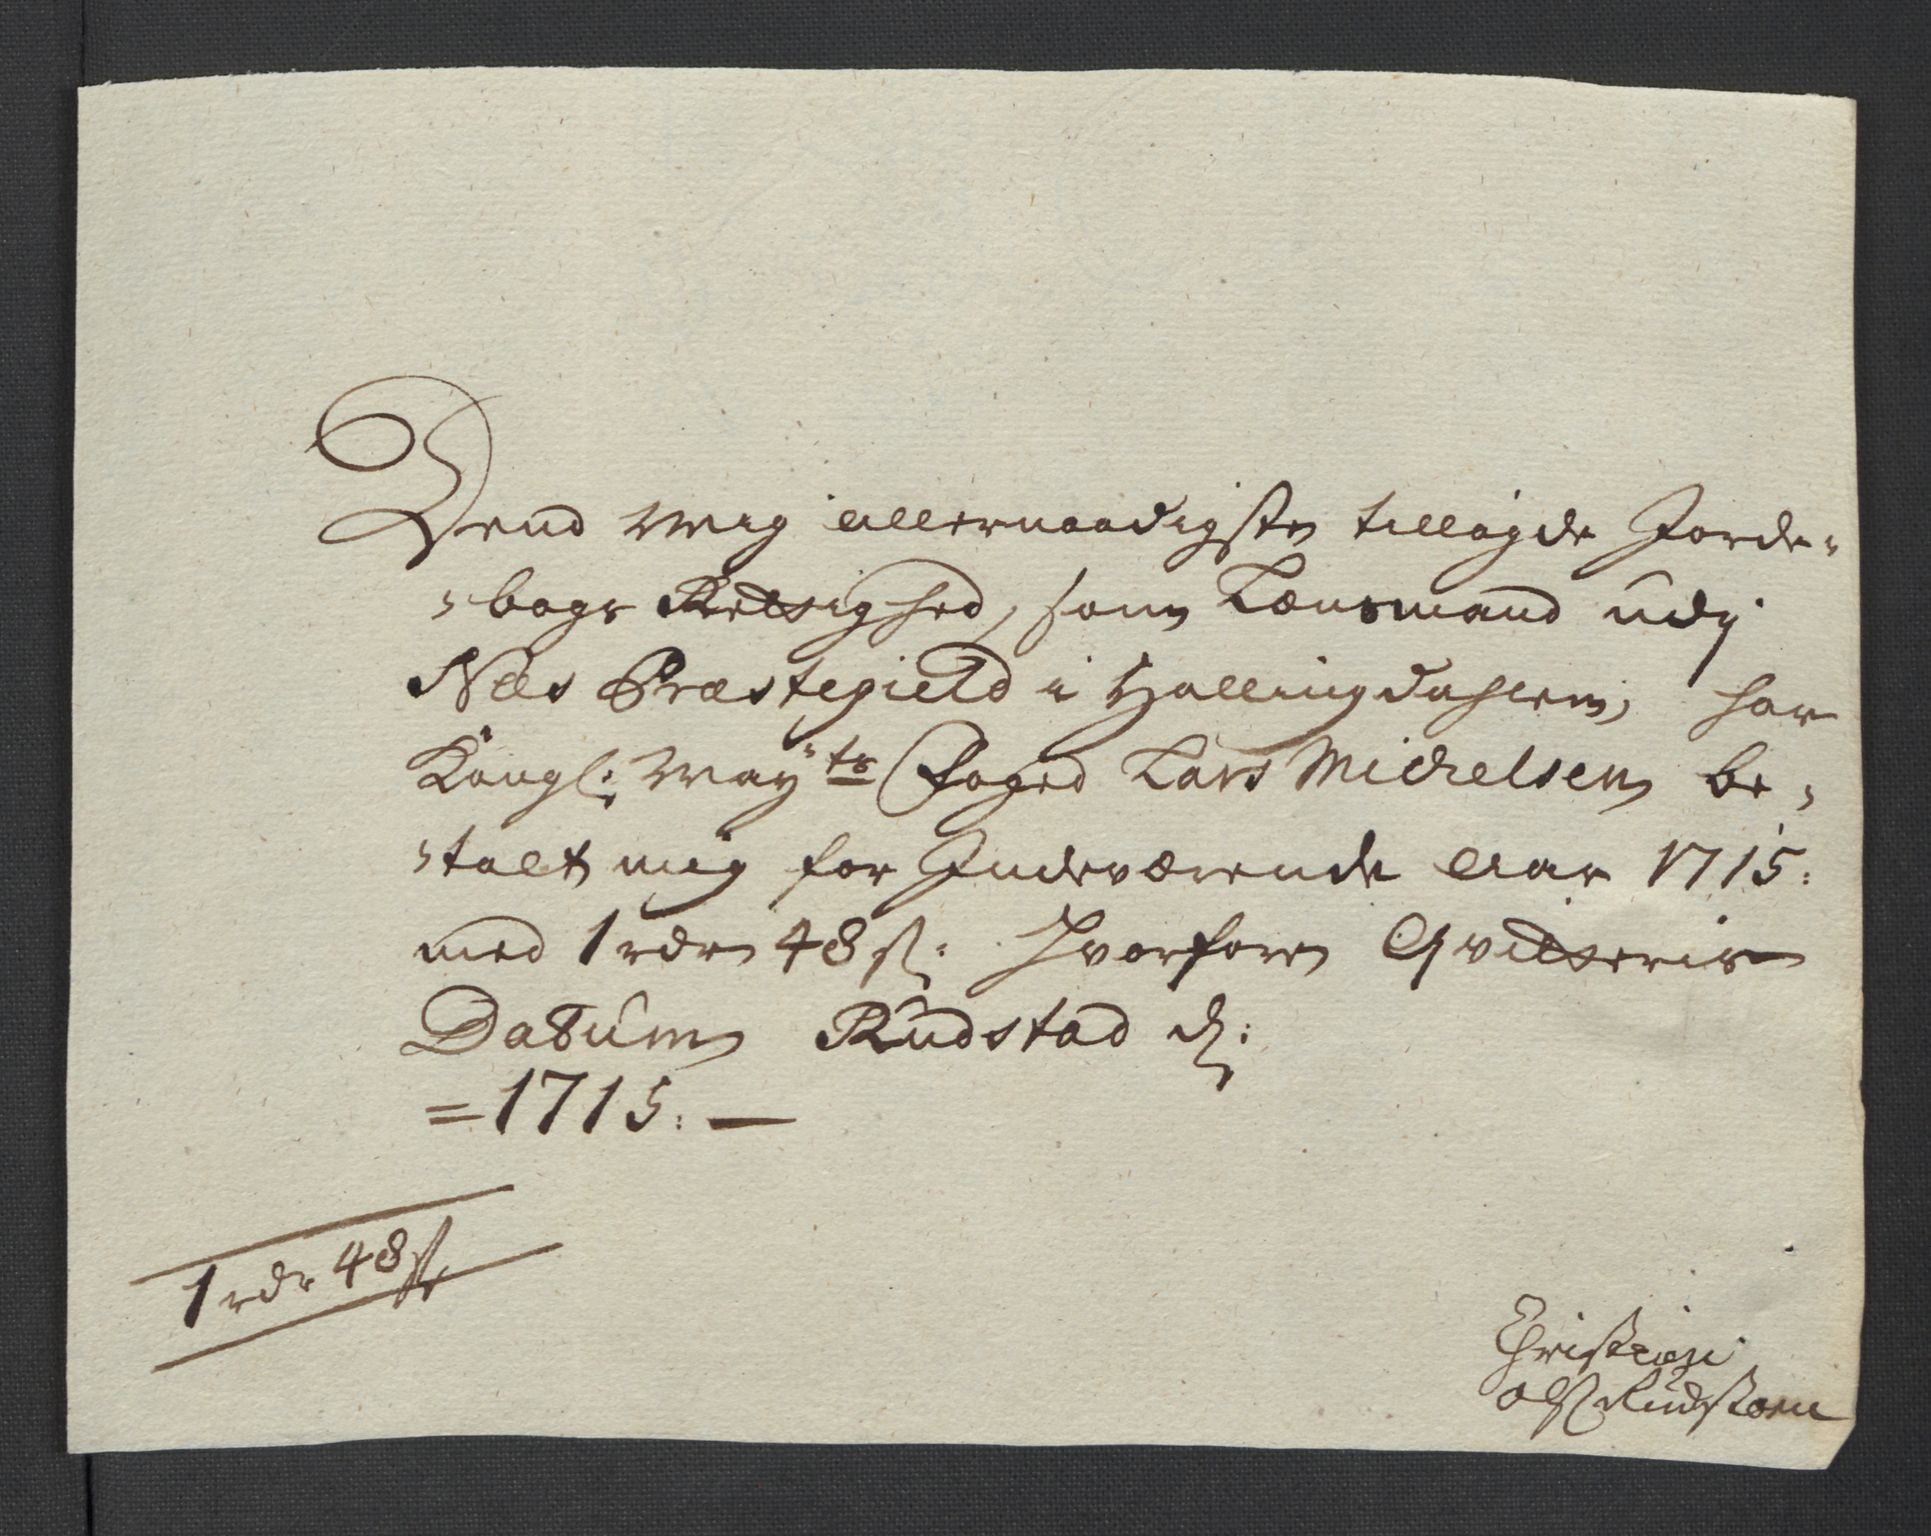 Dend Mig allernaadigste tillagde Jorde-
-bogs Rettighed, som Lænsmand udj
Næs Præstegield i Hallingdahlen, har
Kongl: May:ts Foged Lars Michelsen be-
-talt mig for Indeværende Aar 1715:
med 1 rdr 48 s: Hvorforen Qvitteris
Datum Rudstad d:
=1715. —
1 rdr 48 s
Christian
Ols Rudstaen